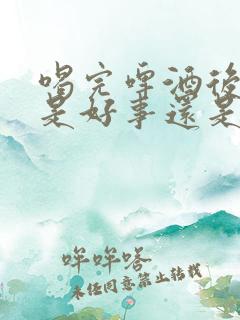 喝完啤酒後
是好事還是
哞哞嗒
未经同意禁止转载